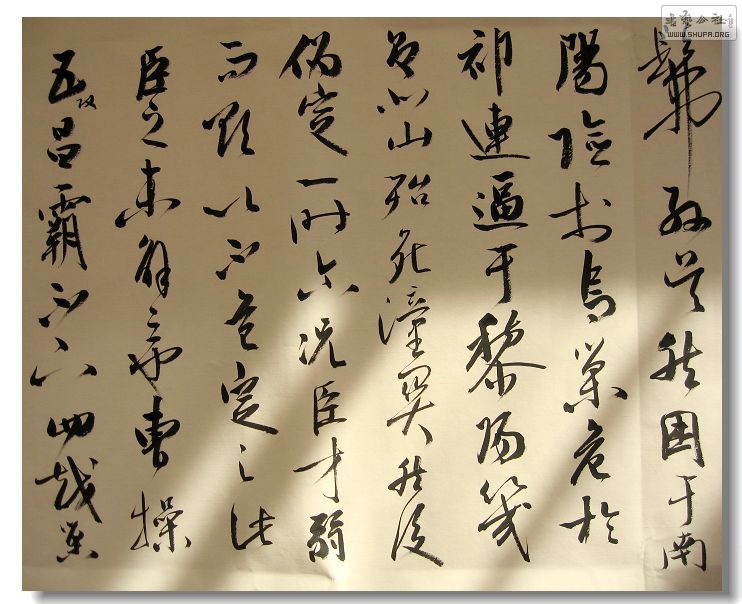 書藝公社
WWW.SHUFA.ORG
髴孫吳然困于南
陽險於烏巢危於
祁連逼于黎陽幾
敗北山殆死潼關然後
偽定一時尔況臣才弱
而欲以不危定之此
臣之未解三也曹操
五攻昌霸不下四越巢